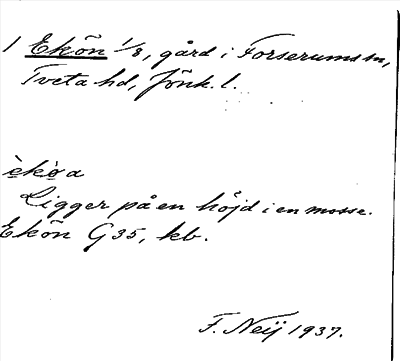 1 Ekön 1/8, gård i Forserums sn,
Tveta hd, Jönk. l.
èkø̀a
Ligger på en höjd i en mosse.
Ekön G35, kb.
F. Neij 1937.